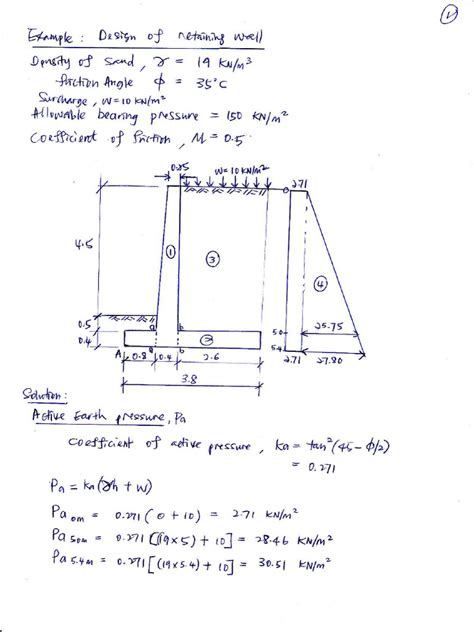 1
Example : Design of retaining wall
Density of sand, γ = 19 KN/m³
friction Angle ϕ = 35°C
Surcharge, W=10 KN/m²
Allowable bearing pressure = 150 KN/m²
Coefficient of friction, M = 0.5
0.25
W=10 KN/m²
0
2.71
4.5
①
③
④
0.5
a
b
5.0
25.75
0.4
②
5.4
A
0.8
a
0.4
b
2.6
2.71
27.80
3.8
Solution:
Active Earth pressure, Pa
Coefficient of active pressure, Ka = tan²(45 - ϕ/2)
= 0.271
Pa = Ka(γh + W)
Pa 0m = 0.271 ( 0 + 10 ) = 2.71 KN/m²
Pa 5.0m = 0.271 [(19×5) + 10] = 28.46 KN/m²
Pa 5.4m = 0.271 [(19×5.4) + 10] = 30.51 KN/m²